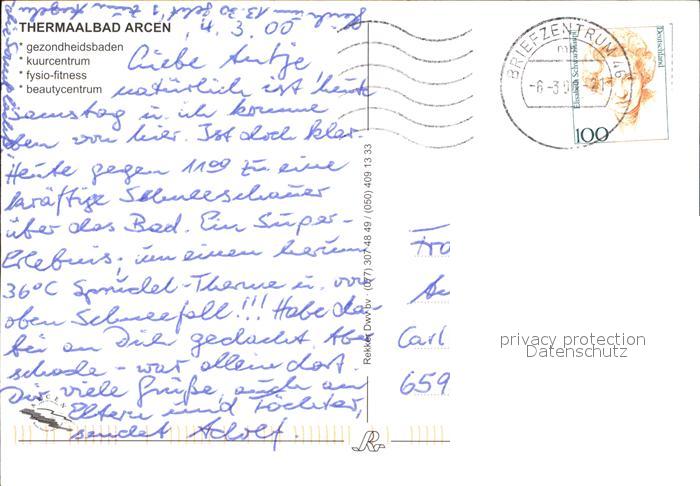 THERMAALBAD ARCEN
* gezondheidsbaden
* kuurcentrum
* fysio-fitness
* beautycentrum
4.3.00
Liebe Antje!
natürlich ist heute
Samstag u. ich komme
eben von hier. Ist doch klar.
Heute gegen 11⁰⁰ zu eine
kräftige Schneeschauer
über das Bad. Ein Super-
Erlebnis; um einen herum
36°C Sprudel-Therme u. von
oben Schneefall!!! Habe da-
bei an Dich gedacht. Aber
schade - war allein dort.
Dir viele Grüße, auch an
Eltern und Töchter,
sendet Adolf.
Rekker Dwv bv · (077) 307 48 49 / (050) 409 13 33
BRIEFZENTRUM 46
Elisabeth Schwarzhaupt
Deutschland
100
Fra
Carl
659
privacy protection
Datenschutz